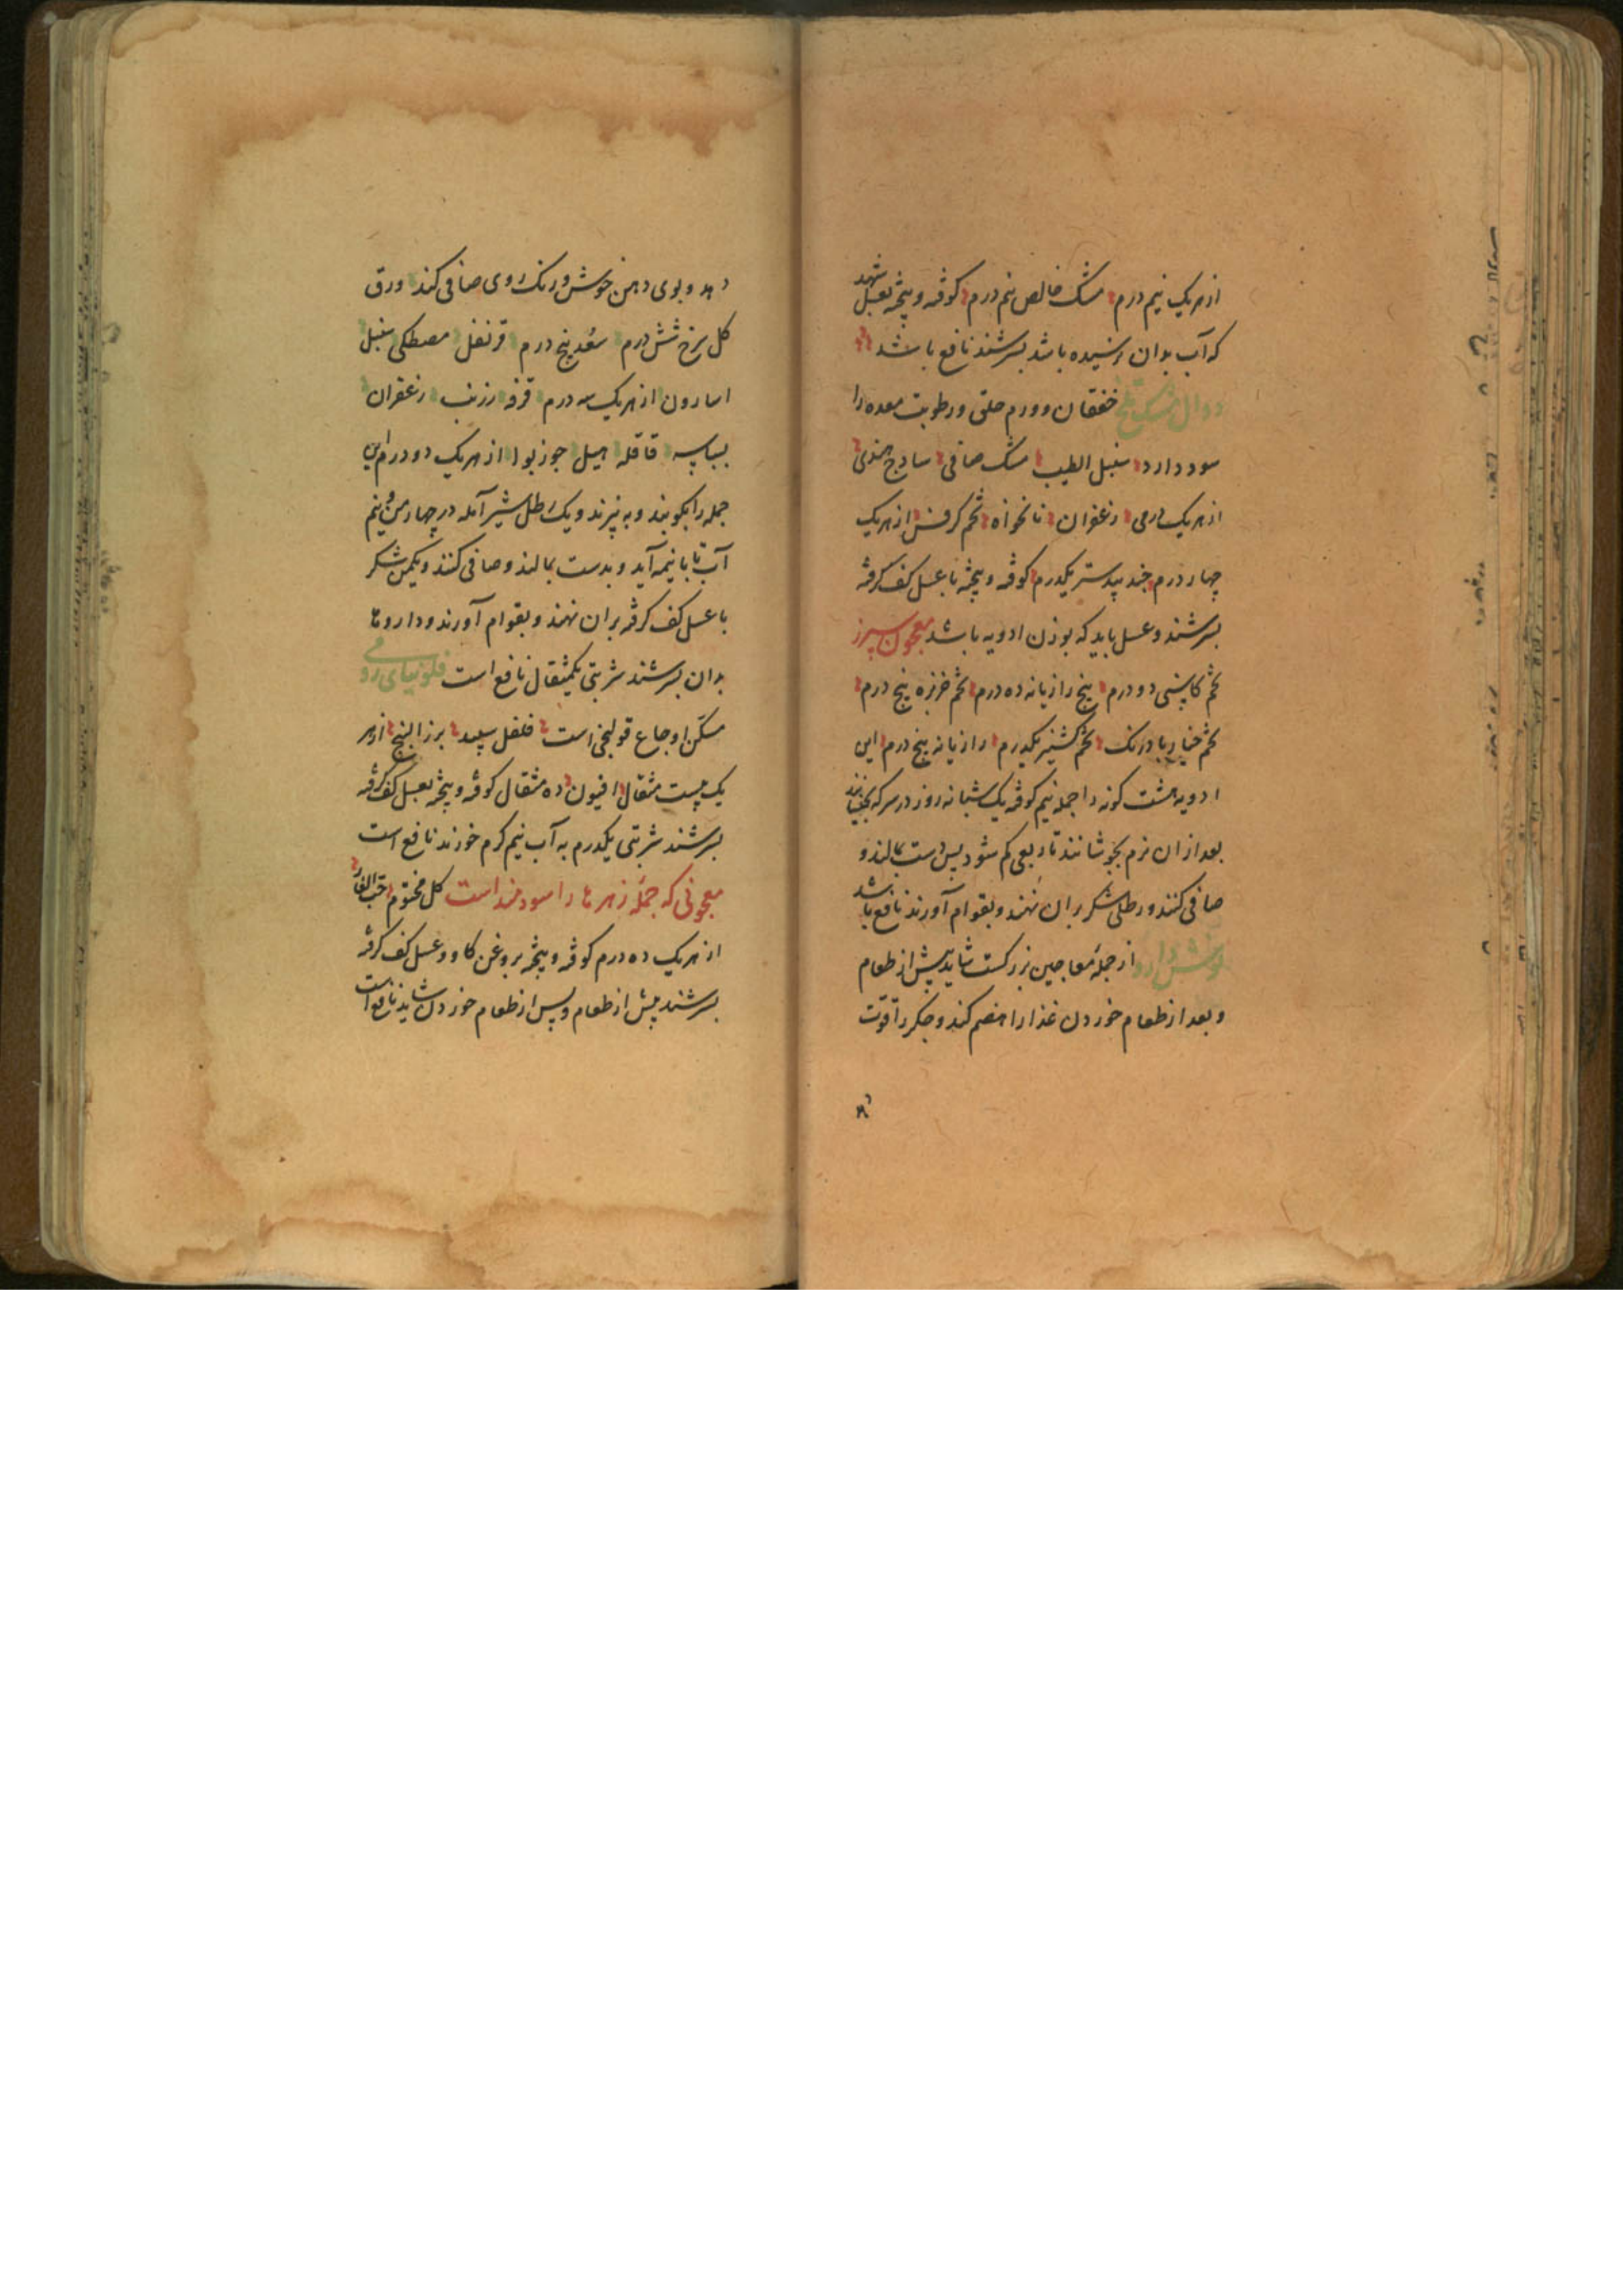 از هر یک نیم درم مشک خالص نیم درم کوفته و پیخته بعسل شهد
که آب بدان نرسیده باشد بسرشند نافع باشد
دوال مشک تلخ خفقان و ورم حلق و رطوبت معده را
سود دارد سنبل الطیب مشک صافی سادج هندی
از هر یک درمی زعفران نانخواه تخم کرفس از هر یک
چهار درم جند بیدستر یکدرم کوفته و پیخته با عسل کف کرفته
بسرشند و عسل باید که بوزن ادویه باشد معجون سپرز
تخم کاسنی دو درم بیخ رازیانه ده درم تخم خربزه پنج درم
تخم خیار بادرنک تخم کشنیز یکدرم رازیانه پنج درم این
ادویه هشت کونه را جمله نیم کوفته یک شبانه روز در سرکه بخیسانند
بعد از ان نرم بجوشانند تا ربعی کم شود پس دست بمالند و
صافی کنند و رطلی شکر بران نهند و بقوام آورند نافع باشد
نوش دارو از جمله معاجین بزرکست شاید پیش از طعام
و بعد از طعام خوردن غذا را هضم کند و جکر را قوت
دهد
دهد و بوی دهن خوش و رنک روی صافی کند ورق
کل سرخ شش درم سعد پنج درم قرنفل مصطکی سنبل
اسارون از هر یک سه درم قرفه زرنب زعفران
بسباسه قاقله هیل جوزبوا از هر یک دو درم این
جمله را بکوبند و به پیزند و یک رطل شیر آمله در چهار من و نیم
آب تا با نیمه آید و بدست بمالند و صافی کنند و یکمن شکر
با عسل کف کرفته بران نهند و بقوام آورند و داروها
بدان بسرشند شربتی یکمثقال نافع است فلونیای رومی
مسکن اوجاع قولنجی است فلفل سپید بزر البنج از هر
یک بیست مثقال افیون ده مثقال کوفته و پیخته بعسل کف کرفته
بسرشند شربتی یکدرم به آب نیم کرم خورند نافع است
معجونی که جمله زهرها را سودمند است کل مختوم حب الغار
از هر یک ده درم کوفته و پیخته بروغن کاو و عسل کف کرفته
بسرشند پیش از طعام و پس از طعام خوردن شاید نافع است